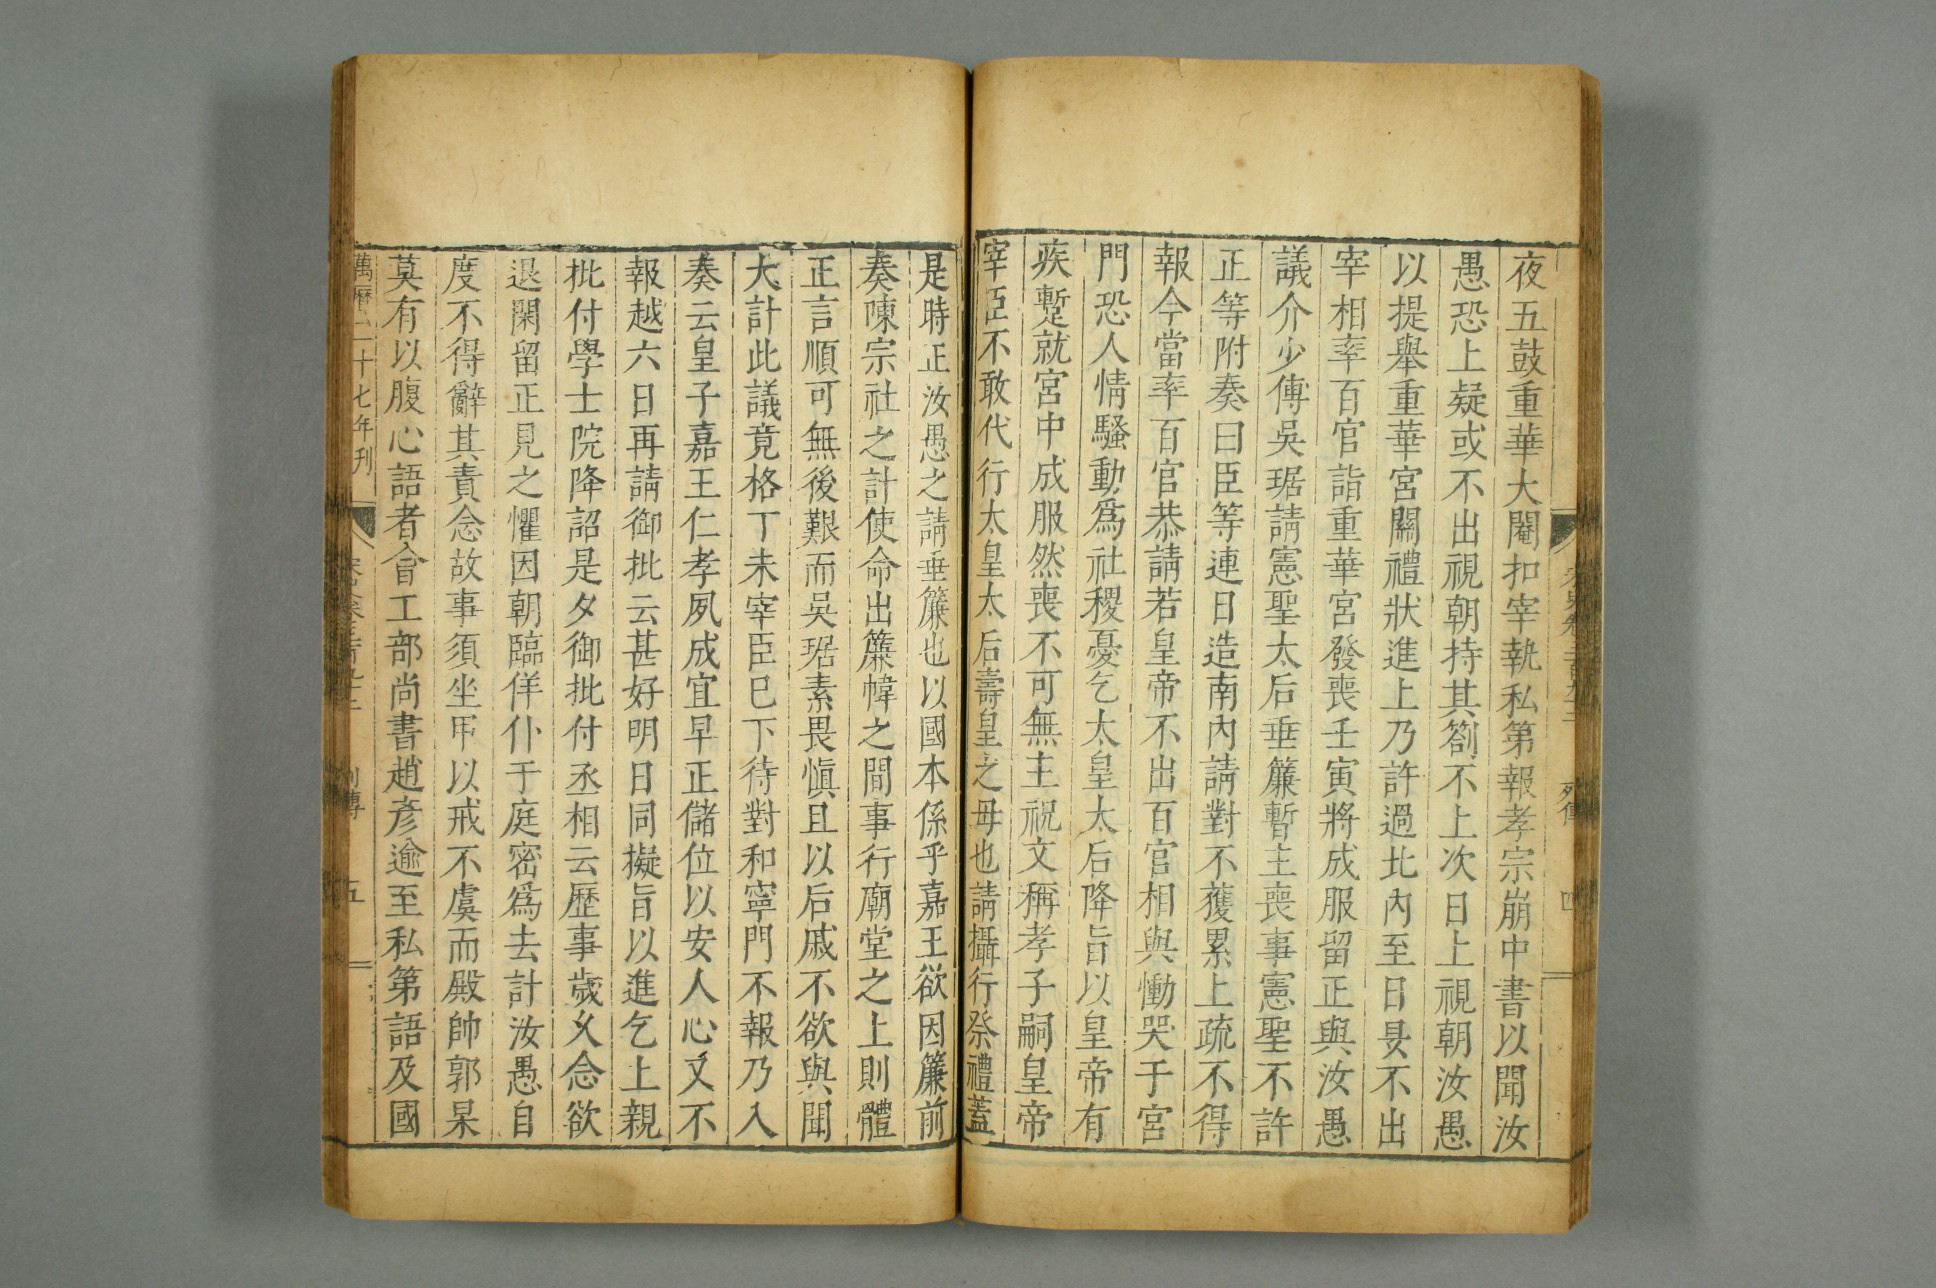 夜五鼓重華大閹扣宰執私第報孝宗崩中書以聞汝
愚恐上疑或不出視朝持其劄不上次日上視朝汝愚
以提舉重華宮關禮狀進上乃許過北內至日昃不出
宰相率百官詣重華宮發喪壬寅將成服留正與汝愚
議介少傅吳琚請憲聖太后垂簾暫主喪事憲聖不許
正等附奏曰臣等連日造南內請對不獲累上疏不得
報今當率百官恭請若皇帝不出百官相與慟哭于宮
門恐人情騷動爲社稷憂乞太皇太后降旨以皇帝有
疾暫就宮中成服然喪不可無主祝文稱孝子嗣皇帝
宰臣不敢代行太皇太后壽皇之母也請攝行祭禮蓋
是時正汝愚之請垂簾也以國本係乎嘉王欲因簾前
奏陳宗社之計使命出簾幃之間事行廟堂之上則體
正言順可無後艱而吳琚素畏愼且以后戚不欲與聞
大計此議竟格丁未宰臣已下待對和寧門不報乃入
奏云皇子嘉王仁孝夙成宜早正儲位以安人心又不
報越六日再請御批云甚好明日同擬旨以進乞上親
批付學士院降詔是夕御批付丞相云歷事歲久念欲
退閑留正見之懼因朝臨佯仆于庭密爲去計汝愚自
度不得辭其責念故事須坐甲以戒不虞而殿帥郭杲
莫有以腹心語者會工部尚書趙彥逾至私第語及國
萬曆二十七年刊
列傳
五